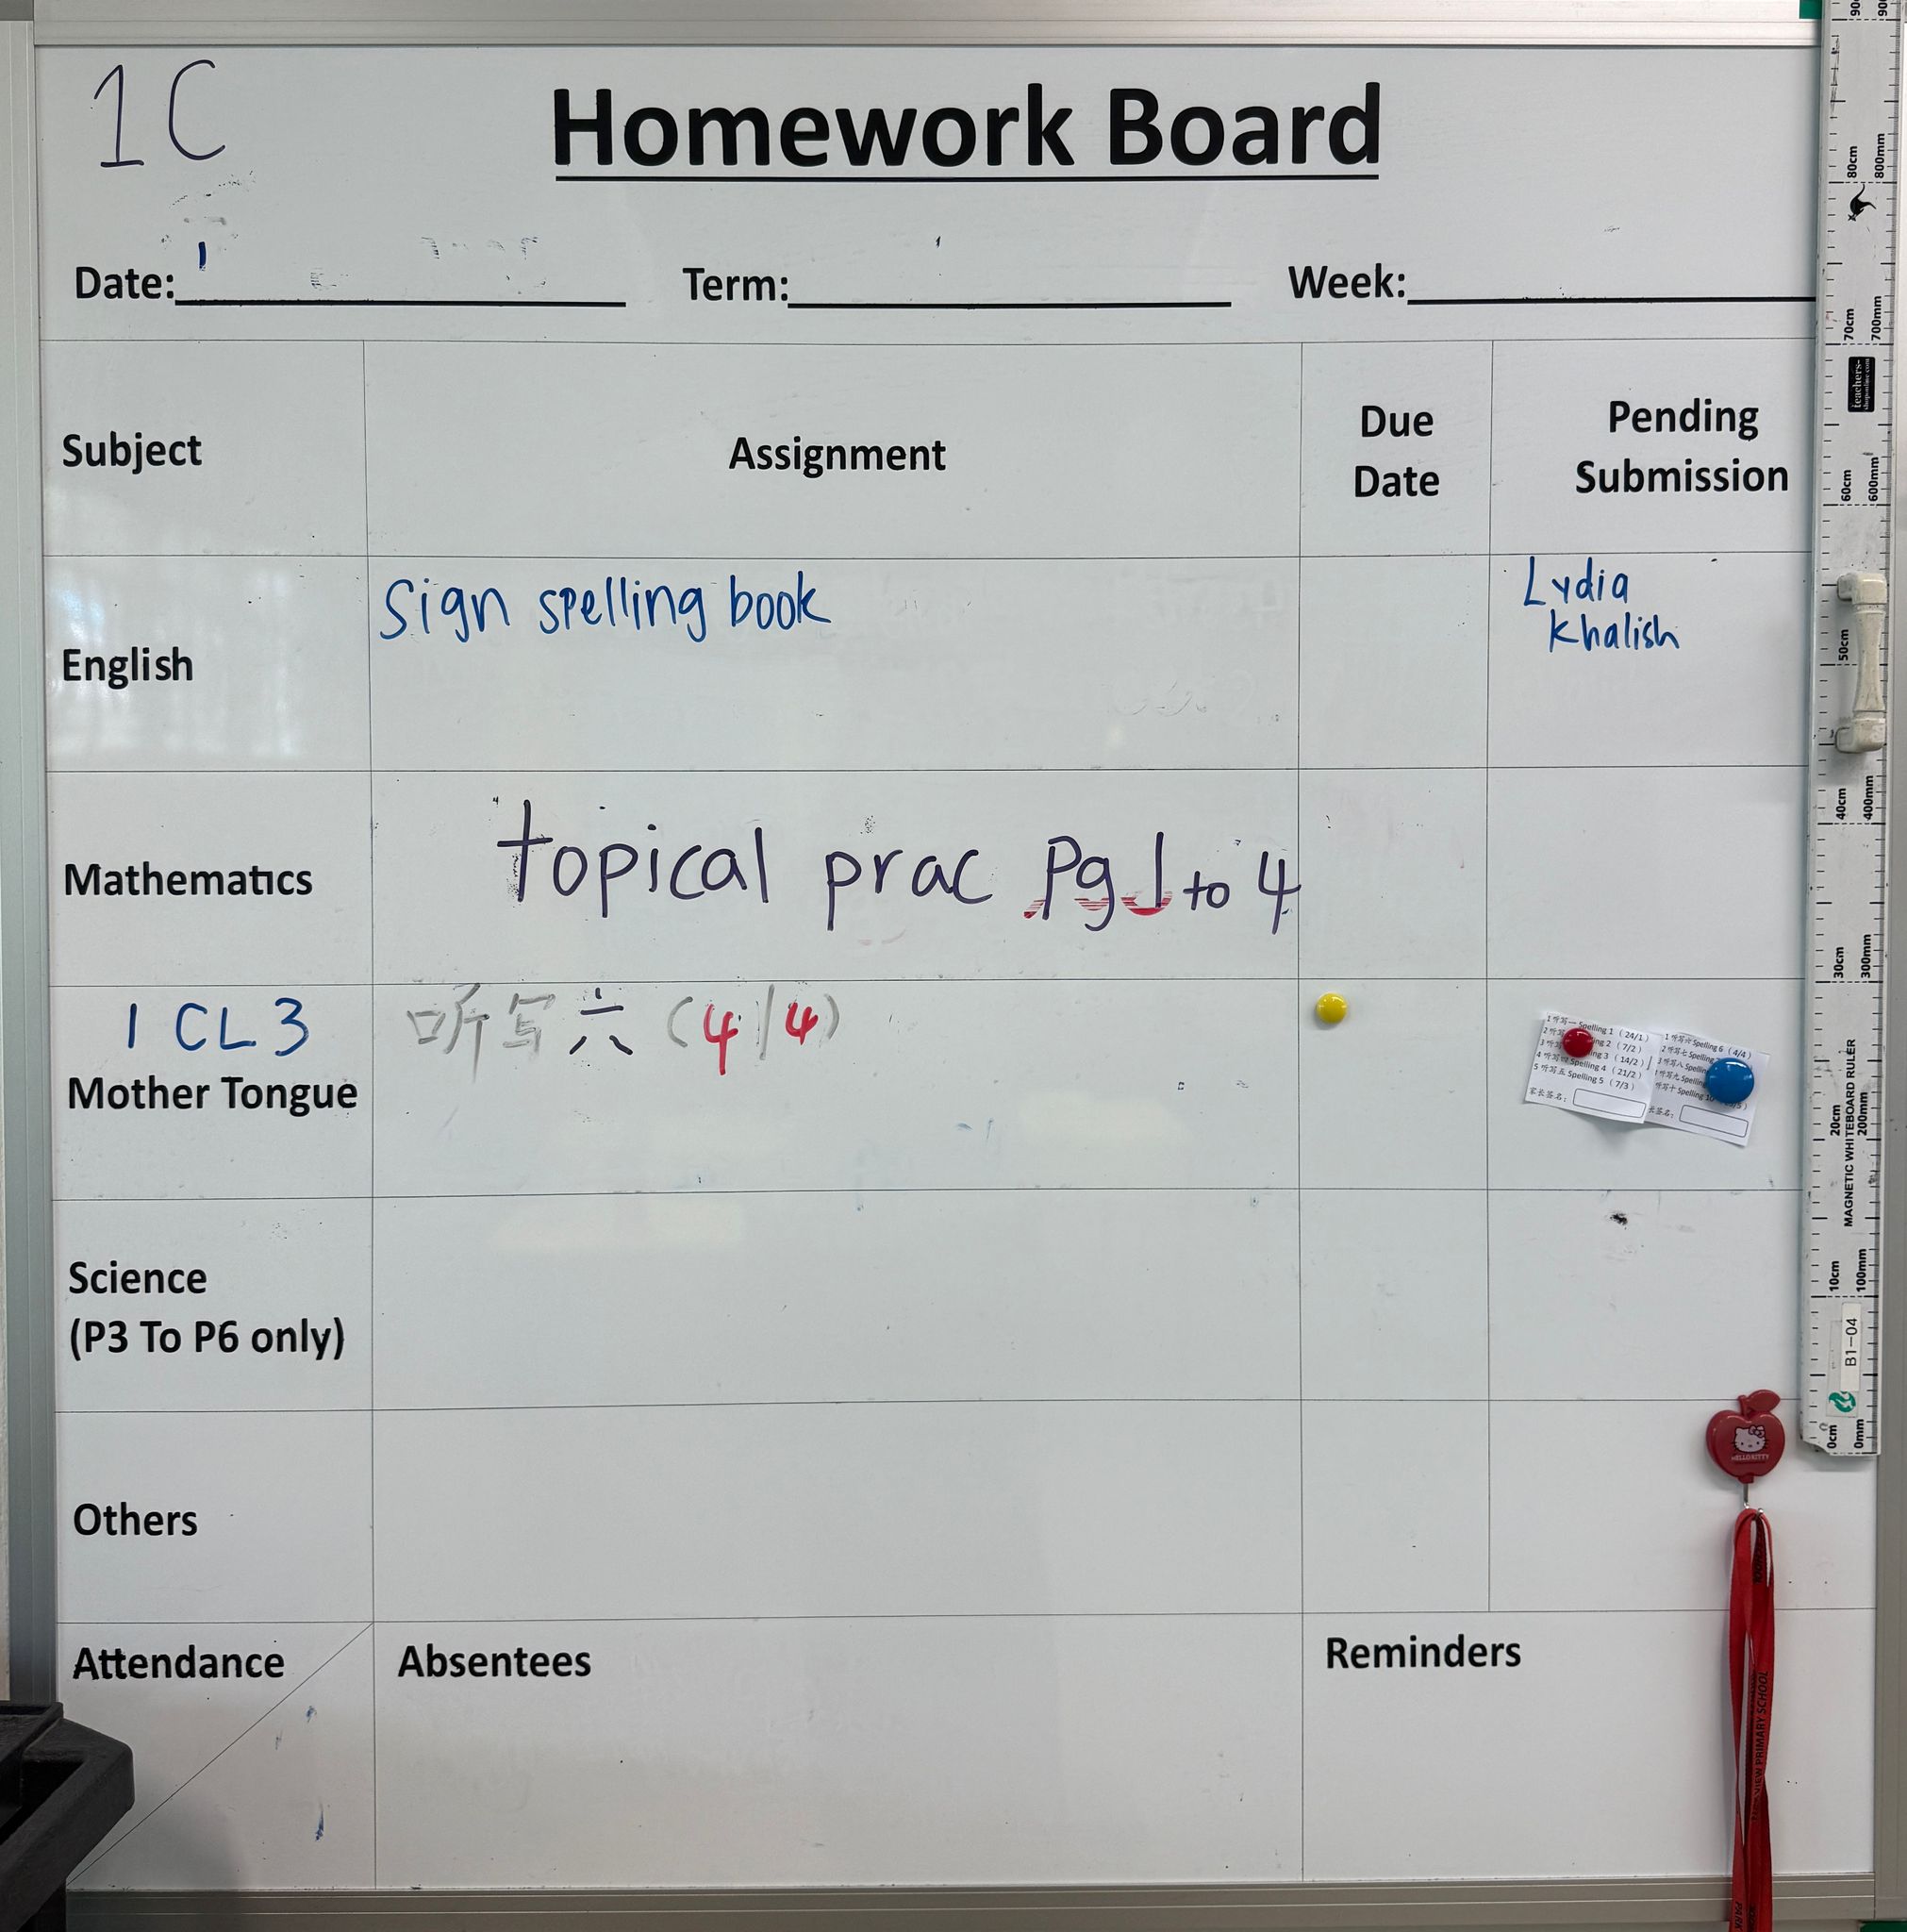 1C
Homework Board
Date:
Term:
Week:
Subject
Assignment
Due Date
Pending Submission
English
Sign spelling book
Lydia
Khalish
Mathematics
topical prac Pg 1 to 4
1 CL 3
Mother Tongue
听写六 (4/4)
1 听写一 Spelling 1 (24/1)
2 听写 ing 2 (7/2)
3 听写 ing 3 (14/2)
4 听写四 Spelling 4 (21/2)
5 听写五 Spelling 5 (7/3)
家长签名:
1 听写六 Spelling 6 (4/4)
2 听写七 Spelling
听写八 Spellin
听写九 Spellin
听写十 Spelling 10
长签名:
Science
(P3 To P6 only)
Others
Attendance
Absentees
Reminders
90
80cm 800mm
70cm 700mm
teachers-
shoponline.com
60cm 600mm
50cm
40cm 400mm
30cm 300mm
20cm 200mm
MAGNETIC WHITEBOARD RULER
10cm 100mm
B1-04
0cm 0mm
HELLO KITTY
VIEW PRIMARY SCHOOL